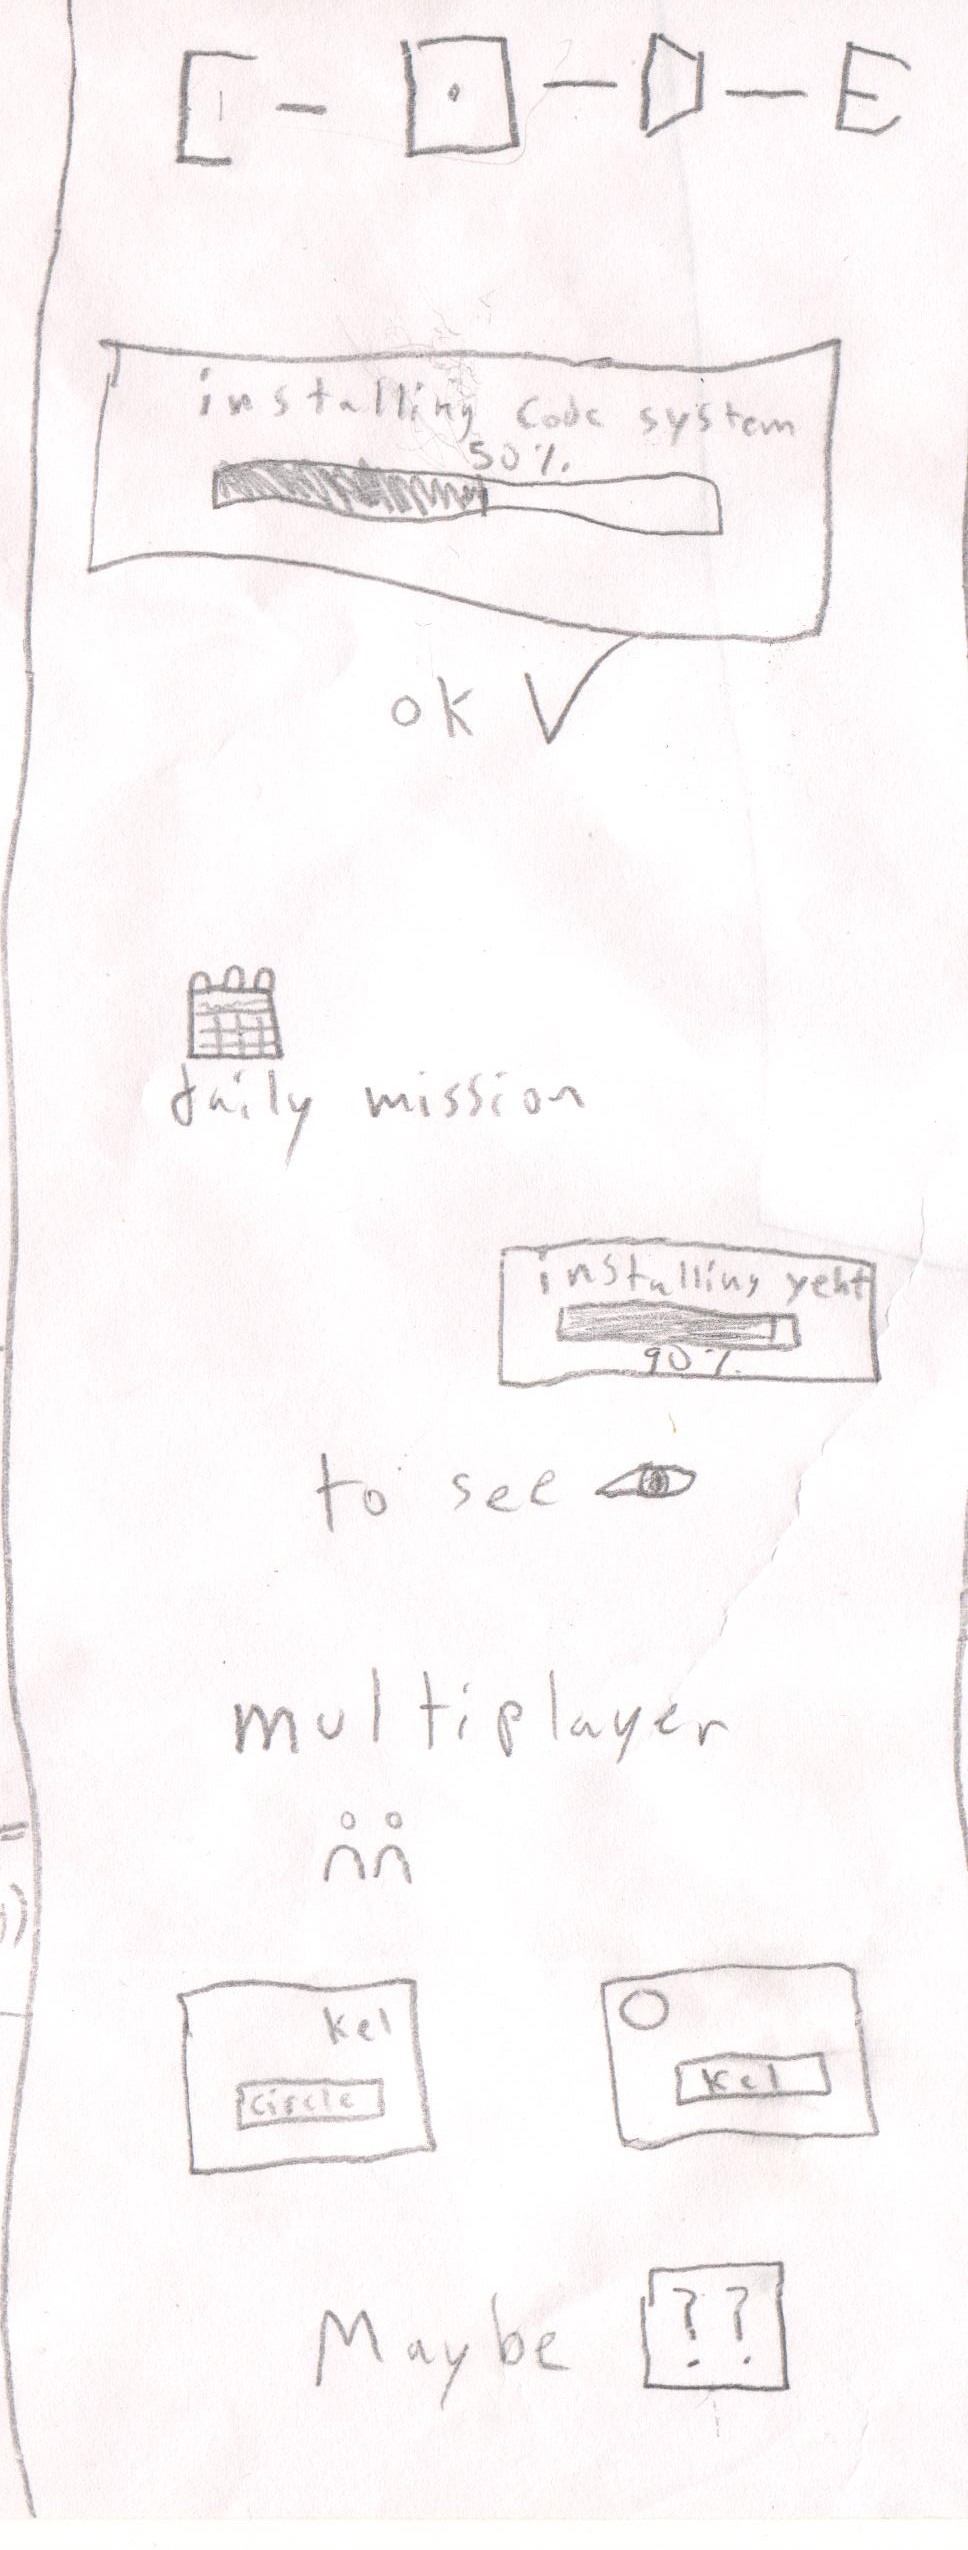 C - O - D - E
installing Code system
50%
ok
daily mission
installing yeht
90%
to see
multiplayer
Kel
circle
Kel
Maybe ??